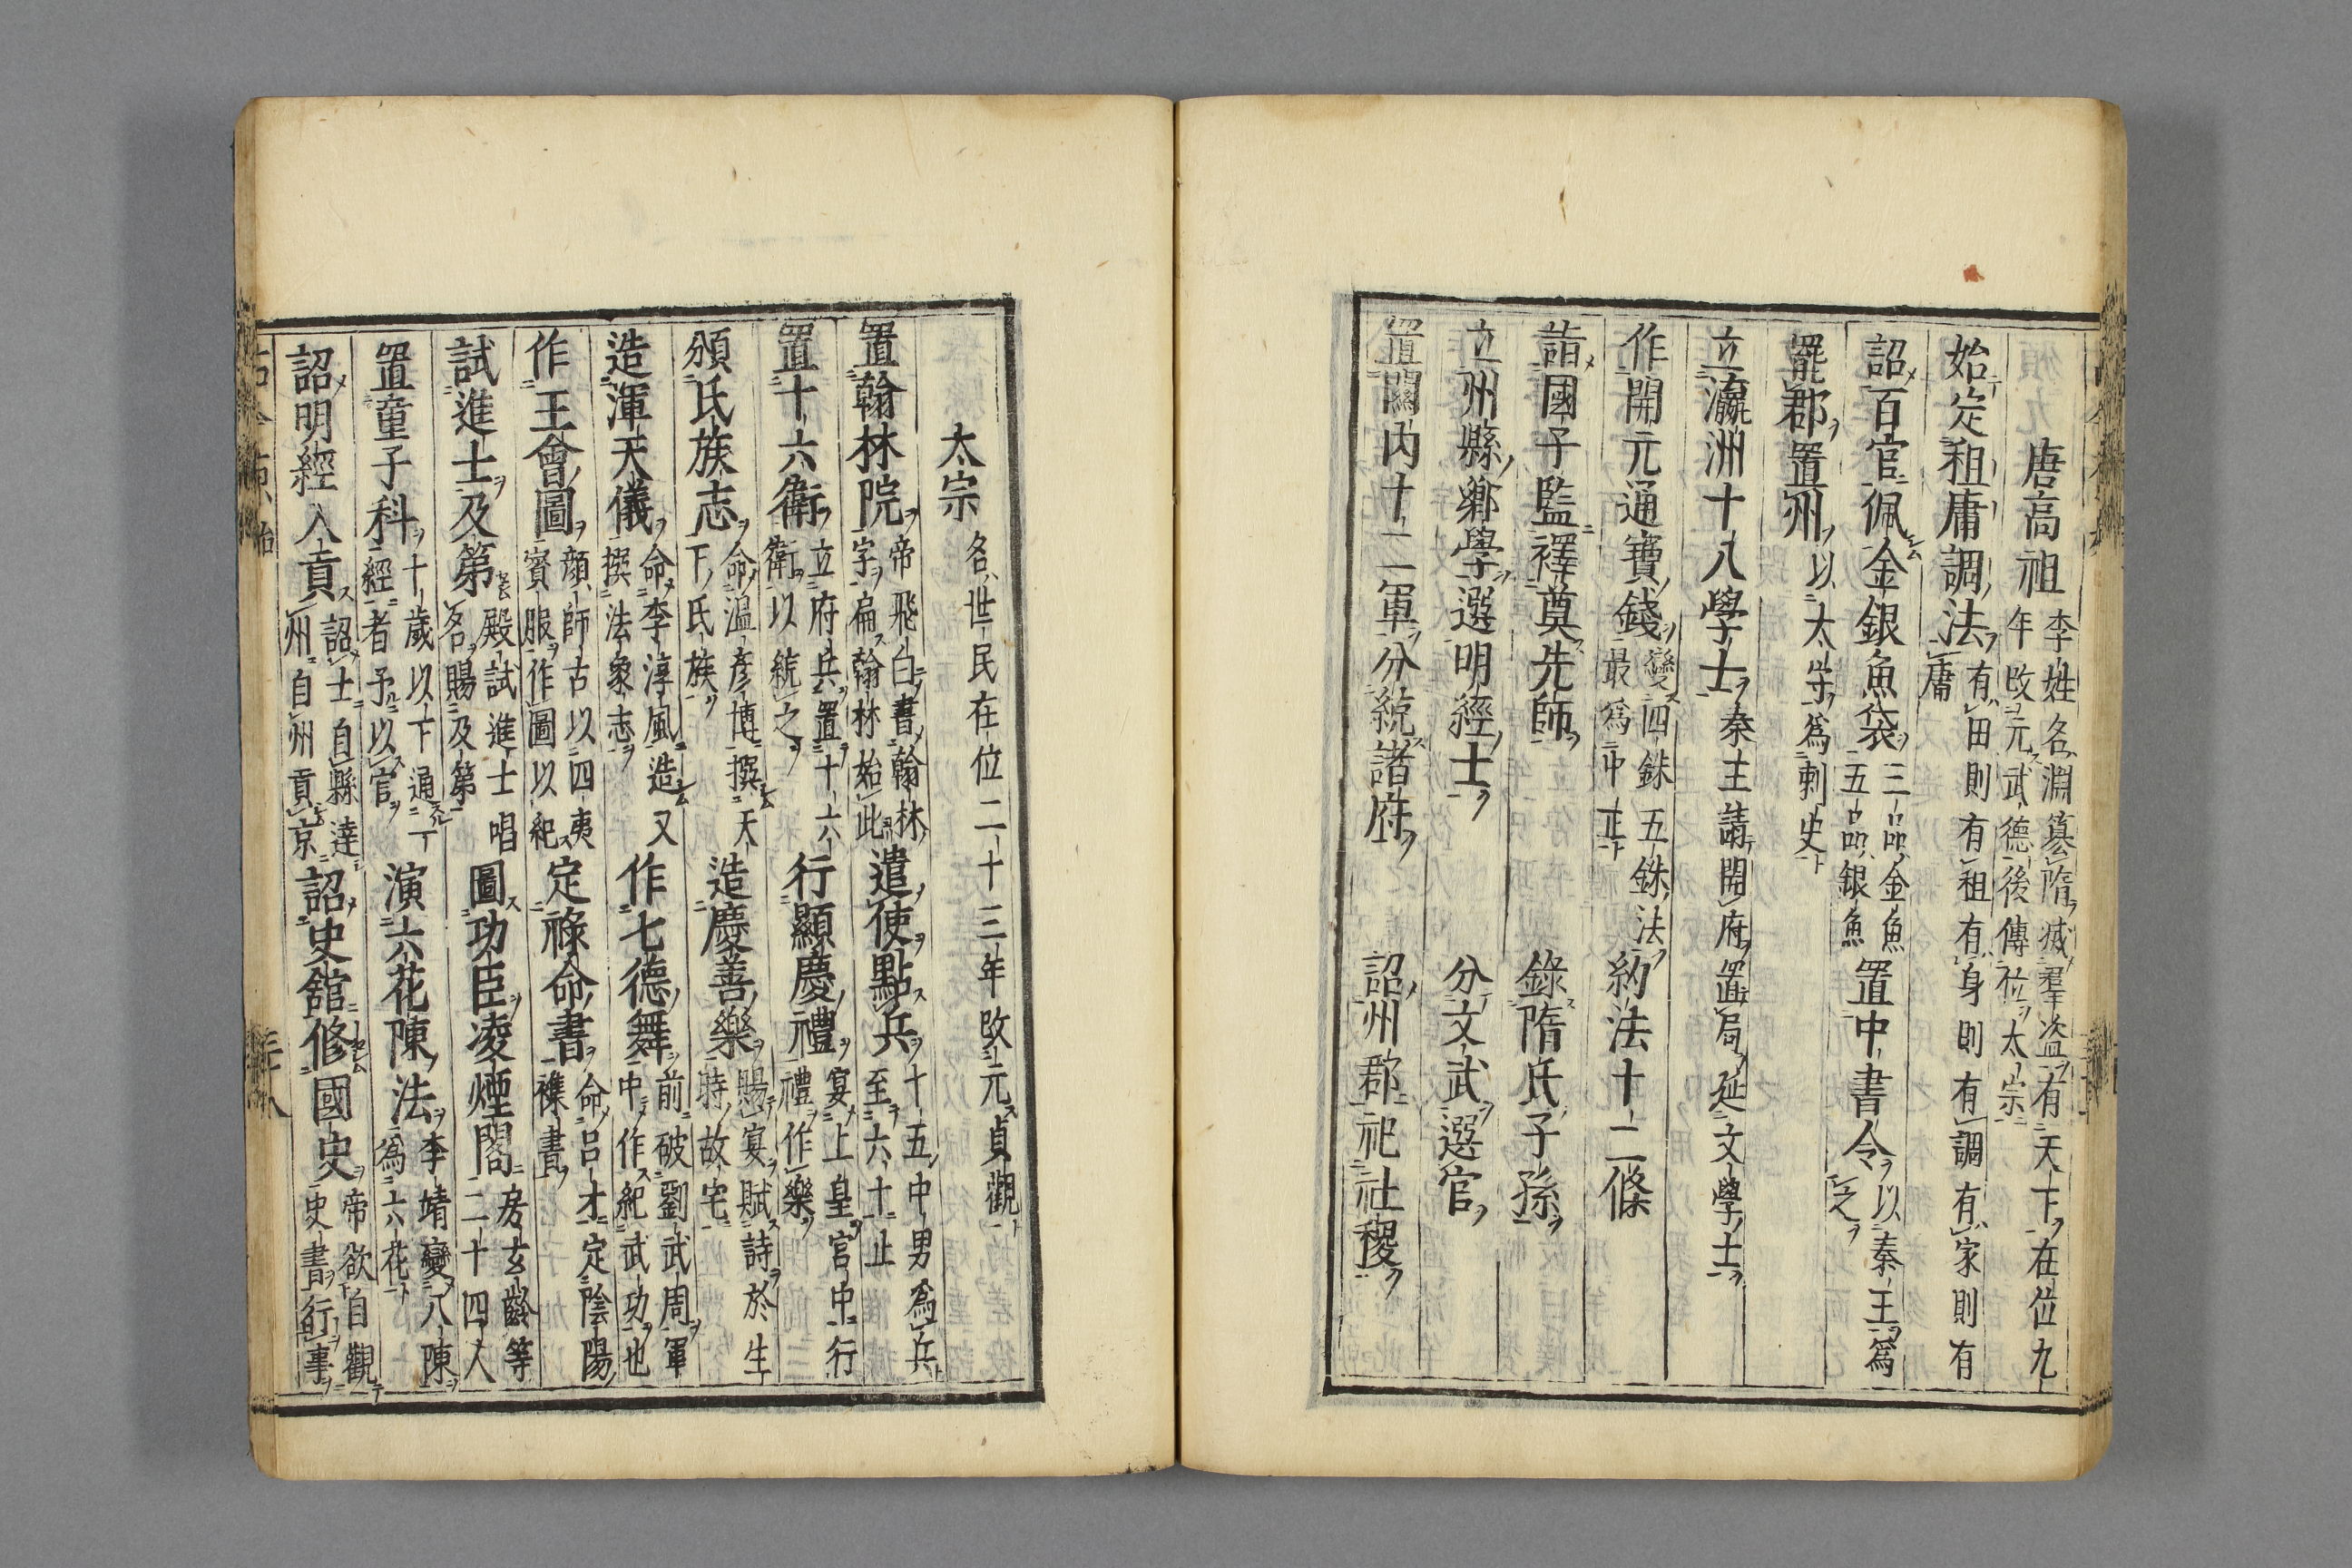 唐高祖 李姓名淵篡隋滅羣盗有天下在位九
年改元武德後傳位太宗
始定租庸調法 有田則有租有身則有調有家則有
庸
詔百官佩金銀魚袋 三品金魚
五品銀魚
置中書令 以秦王爲
之
罷郡置州 以太守爲刺史
立瀛洲十八學士 秦主請開府置局延文學士
作開元通寶錢 變四銖五銖法
最爲中正
約法十二條
詣國子監釋奠先師
錄隋氏子孫
立州縣鄉學選明經士
分文武選官
置關内十二軍分統諸府
詔州郡祀社稷
太宗 名世民在位二十三年改元貞觀
置翰林院 帝飛白書翰林
字扁翰林始此
遣使點兵 十五中男爲兵
至六十止
置十六衛 立府兵置十六
衛以統之
行顯慶禮 宴上皇官中行
禮作樂
頒氏族志 命温彦博撰天
下氏族
造慶善樂 賜宴賦詩於生
時故宅
造渾天儀 命李淳風造又
撰法象志
作七德舞 前破劉武周軍
中作紀武功也
作王會圖 顔師古以四夷
賓服作圖以紀
定祿命書 命吕才定陰陽
襍書
試進士及第 殿試進士唱
名賜及第
圖功臣凌煙閣 房玄齡等
二十四人
置童子科 十歲以下通一
經者予以官
演六花陳法 李靖變八陳
爲六花
詔明經入貢 詔士自縣達
州自州貢京
詔史舘修國史 帝欲自觀
史書行事